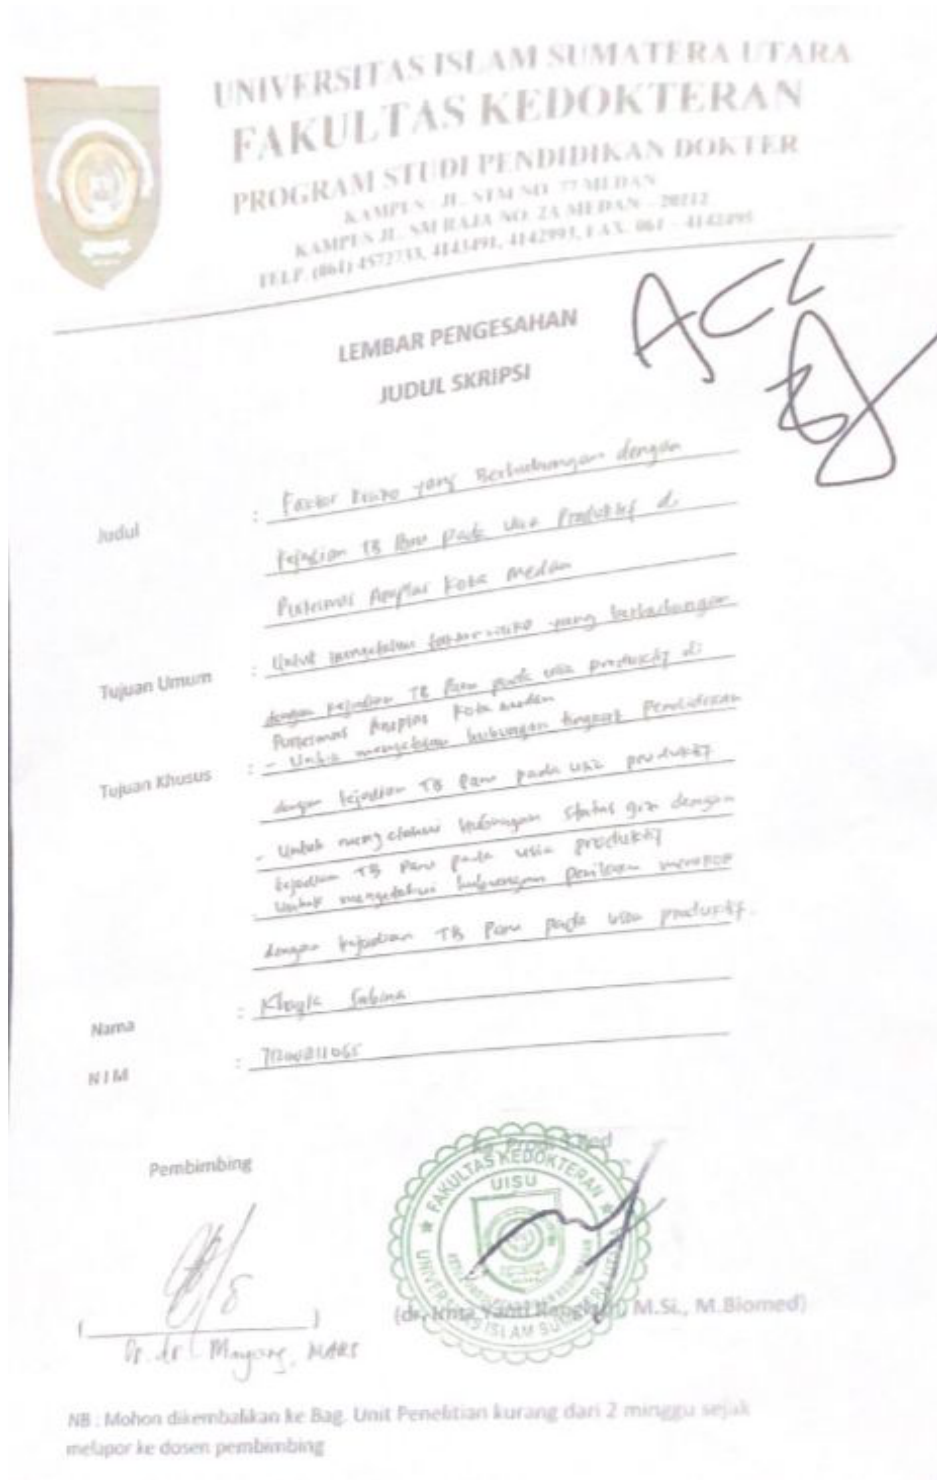 UNIVERSITAS ISLAM SUMATERA UTARA
FAKULTAS KEDOKTERAN
PROGRAM STUDI PENDIDIKAN DOKTER
KAMPUS : JL. STM NO. 77 MEDAN
KAMPUS JL. SM RAJA NO. 2A MEDAN - 20212
TELP. (061) 4572733, 4143491, 4142993, FAX. 061 - 4142495
ACC
LEMBAR PENGESAHAN
JUDUL SKRIPSI
Judul : Factor Risiko yang Berhubungan dengan
kejadian TB Paru pada usia Produktif di
Puskesmas Amplas Kota Medan
Tujuan Umum : Untuk mengetahui faktor risiko yang berhubungan
dengan kejadian TB Paru pada usia produktif di
Puskesmas Amplas Kota medan
Tujuan Khusus : - Untuk mengetahui hubungan tingkat Pendidikan
dengan kejadian TB Paru pada usia produktif
- Untuk mengetahui hubungan status gizi dengan
kejadian TB Paru pada usia produktif
- Untuk mengetahui hubungan perilaku merokok
dengan kejadian TB Paru pada usia produktif.
Nama : Sabina
NIM :
Pembimbing
FAKULTAS KEDOKTERAN
UISU
UNIVERSITAS ISLAM SUMATERA UTARA
(dr. Yanti M.Si., M.Biomed)
Dr. dr. Mayang, MARS
NB : Mohon dikembalikan ke Bag. Unit Penelitian kurang dari 2 minggu sejak
melapor ke dosen pembimbing